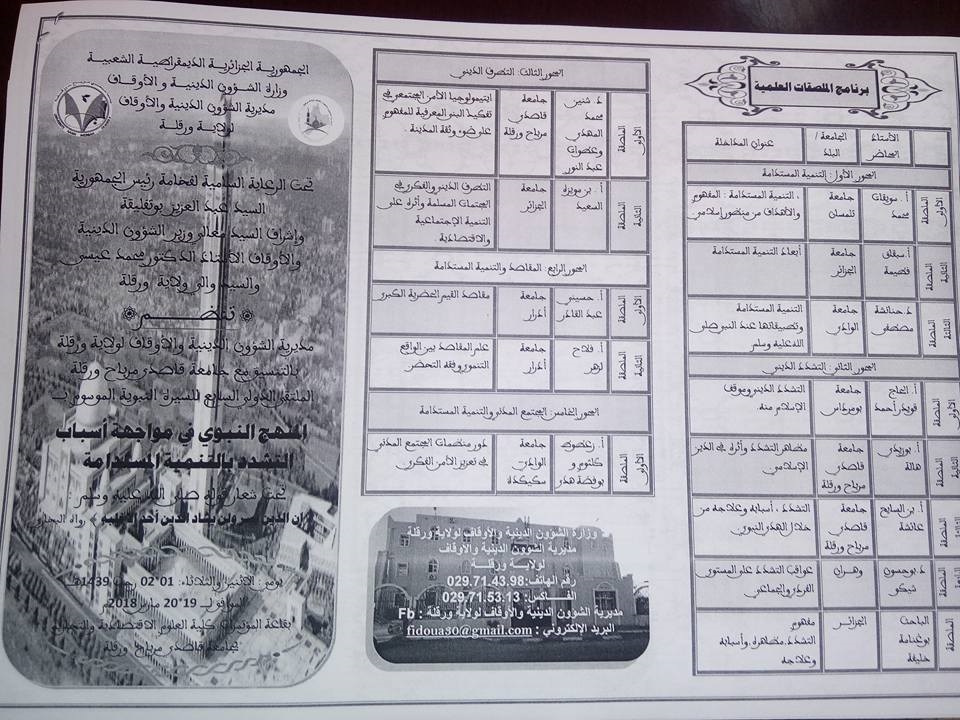 برنامج الملصقات العلمية
الأستاذ المحاضر
الجامعة / البلد
عنوان المداخلة
المحور الأول: التنمية المستدامة
الملصقة الأولى
أ. سويقات محمد
جامعة تلمسان
، التنمية المستدامة : المفهوم والأهداف من منظور إسلامي
الملصقة الثانية
فضيمة
جامعة الجزائر
أبعاد التنمية المستدامة
الملصقة الثالثة
د. حنانشة مصطفى
جامعة الوادي
التنمية المستدامة وتطبيقاتها عند النبي صلى الله عليه وسلم
المحور الثاني: التشدد الديني
الأولى
أ. الحاج قويدر أحمد
جامعة بومرداس
التشدد الديني وموقف الإسلام منه
الملصقة الثانية
أ. بوزيدي هالة
جامعة قاصدي مرباح ورقلة
مظاهر التشدد وأثره في الدين الإسلامي
الملصقة
أ. بن السايح عائشة
جامعة قاصدي مرباح ورقلة
التشدد ، أسبابه وعلاجه من خلال الهدي النبوي
د. بوحسون
وهران
عواقب التشدد على المستوى الفردي والجماعي
الملصقة
الباحث بوغنامة خليفة
الجزائر
مفهوم التشدد، مظاهره، وأسبابه وعلاجه
المحور الثالث: التطرف الديني
الملصقة الأولى
د. شنين محمد المهدي وعضوات عبد النور
جامعة قاصدي مرباح ورقلة
ابتيمولوجيا الأمن المجتمعي في تفكيك البنى المعرفية للمفهوم على ضوء وثقة المدينة .
الملصقة الثانية
أ. بن مويزة السعيد
جامعة الجزائر
التطرف الديني والفكري في المجتمعات المسلمة وأثره على التنمية الإجتماعية والاقتصادية.
المحور الرابع: المقاصد والتنمية المستدامة
الملصقة الأولى
أ. حسيني عبد القادر
جامعة أدرار
مقاصد القيم الحضرية الكبرى
الملصقة الثانية
أ. فلاح لزهر
جامعة أدرار
علم المقاصد بين الواقع التنموي وفقه التحضر
المحور الخامس: المجتمع المدني والتنمية المستدامة
الملصقة الأولى
أ. زعضوط كلثوم و بوفضة هدى
جامعة الوادي سكيكدة
دور منظمات المجتمع المدني في تعزيز الأمن الفكري
وزارة الشؤون الدينية والأوقاف لولاية ورقلة
مديرية الشؤون الدينية والأوقاف
لولاية ورقلة
رقم الهاتف: 029.71.43.98
الفاكس: 029.71.53.13
مديرية الشؤون الدينية والأوقاف لولاية ورقلة : Fb
البريد الإلكتروني : fidoua30@gmail.com
الجمهورية الجزائرية الديمقراطية الشعبية
وزارة الشؤون الدينية والأوقاف
مديرية الشؤون الدينية والأوقاف
لولاية ورقلة
تحت الرعاية السامية لفخامة رئيس الجمهورية
السيد عبد العزيز بوتفليقة
وإشراف السيد معالي وزير الشؤون الدينية
والأوقاف الأستاذ الدكتور محمد عيسى
والسيد والي ولاية ورقلة
تنظم
مديرية الشؤون الدينية والأوقاف لولاية ورقلة
بالتنسيق مع جامعة قاصدي مرباح ورقلة
الملتقى الدولي السابع للسيرة النبوية الموسوم بـ
المنهج النبوي في مواجهة أسباب
التشدد بالتنمية المستدامة
تحت شعار قوله صلى الله عليه وسلم :
إن الدين يسر ولن يشاد الدين أحد إلا غلبه ﴾ رواه البخاري
يومي : الاثنين والثلاثاء: 01 02 رجب 1439هـ
الموافق لـ 19 20 مارس 2018م
بقاعة المؤتمرات كلية العلوم الاقتصادية والتجارية
بجامعة قاصدي مرباح ورقلة